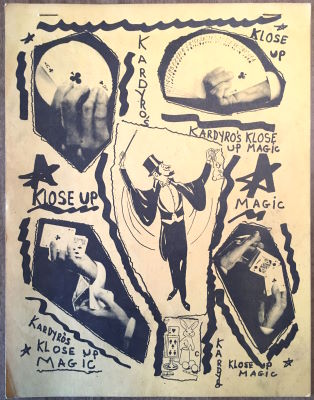 KARDYRO'S
KLOSE
UP
KARDYRO'S KLOSE
UP MAGIC
KLOSE UP
MAGIC
KARDYRO'S
KLOSE UP
MAGIC
KARDYRO
KLOSE UP
MAGIC